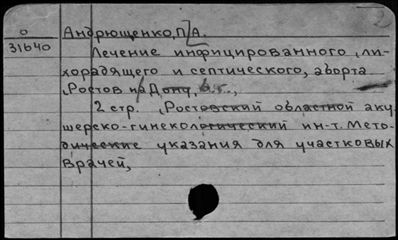 О
31640
Андрющенко, П.А.
Лечение инфицированного, ли-
хорадящего и септического, аборта
Ростов на Дону, б.г.,
2 стр. Ростовский областной аку-
шерско-гинекологический ин-т. Мето-
дические указания для участковых
врачей,